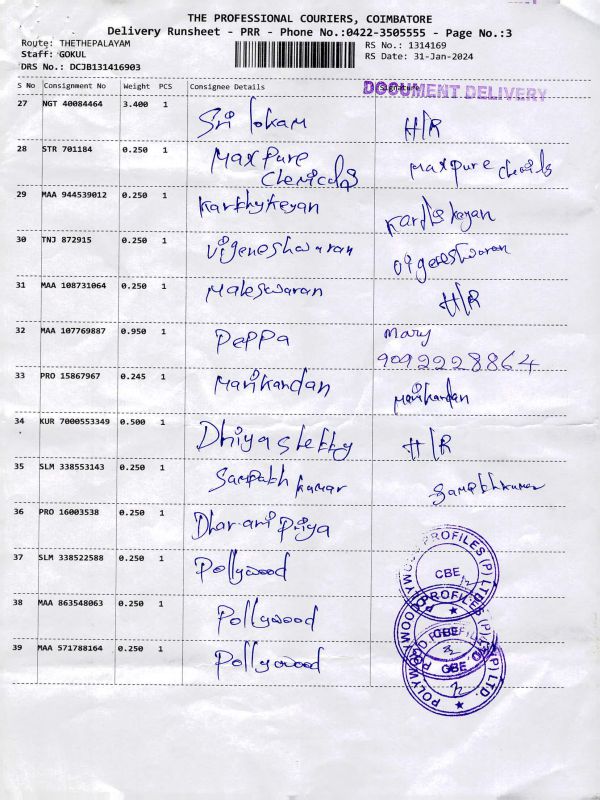 THE PROFESSIONAL COURIERS, COIMBATORE
Delivery Runsheet - PRR - Phone No.:0422-3505555 - Page No.:3
Route: THETHEPALAYAM
Staff: GOKUL
DRS No.: DCJB131416903
RS No.: 1314169
RS Date: 31-Jan-2024
DOCUMENT DELIVERY
S No Consignment No Weight PCS Consignee Details Signature
27 NGT 40084464 3.400 1 Sri lokam H/R
28 STR 701184 0.250 1 Maxpure Chemicals Maxpure
29 MAA 944539012 0.250 1 Karthykeyan Karthikeyan
30 TNJ 872915 0.250 1 Vigeneshwaran Vigeneshwaran
31 MAA 108731064 0.250 1 Maleswaran H/R
32 MAA 107769887 0.950 1 Peppa Mary
9092228864
33 PRO 15867967 0.245 1 Manikandan Manikandan
34 KUR 7000553349 0.500 1 Dhiyashetty H/R
35 SLM 338553143 0.250 1 Sampath kumar Sampthkumar
36 PRO 16003538 0.250 1 Dharani Priya
37 SLM 338522588 0.250 1 Pollywood
38 MAA 863548063 0.250 1 Pollywood
39 MAA 571788164 0.250 1 Pollywood
POLYWOOD PROFILES (P) LTD.
CBE
CBE
POLYWOOD PROFILES (P) LTD.
CBE